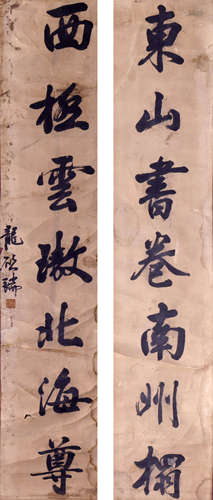 東山書卷南州榻
西極雲璈北海尊
龍啟瑞